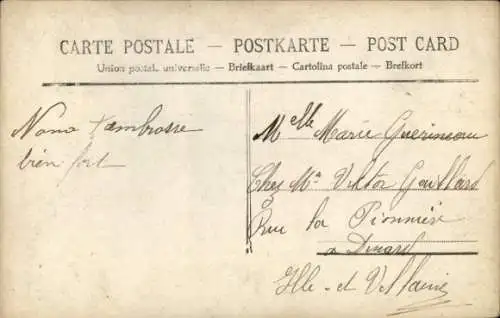 CARTE POSTALE — POSTKARTE — POST CARD
Union postale universelle — Briefkaart — Cartolina postale — Brefkort
Nono t'ambrasse
bien fort
Melle Marie Guerineau
Chez Mr Viktor
Rue la Pionnière
a Dinard
Ille-et-Vilaine